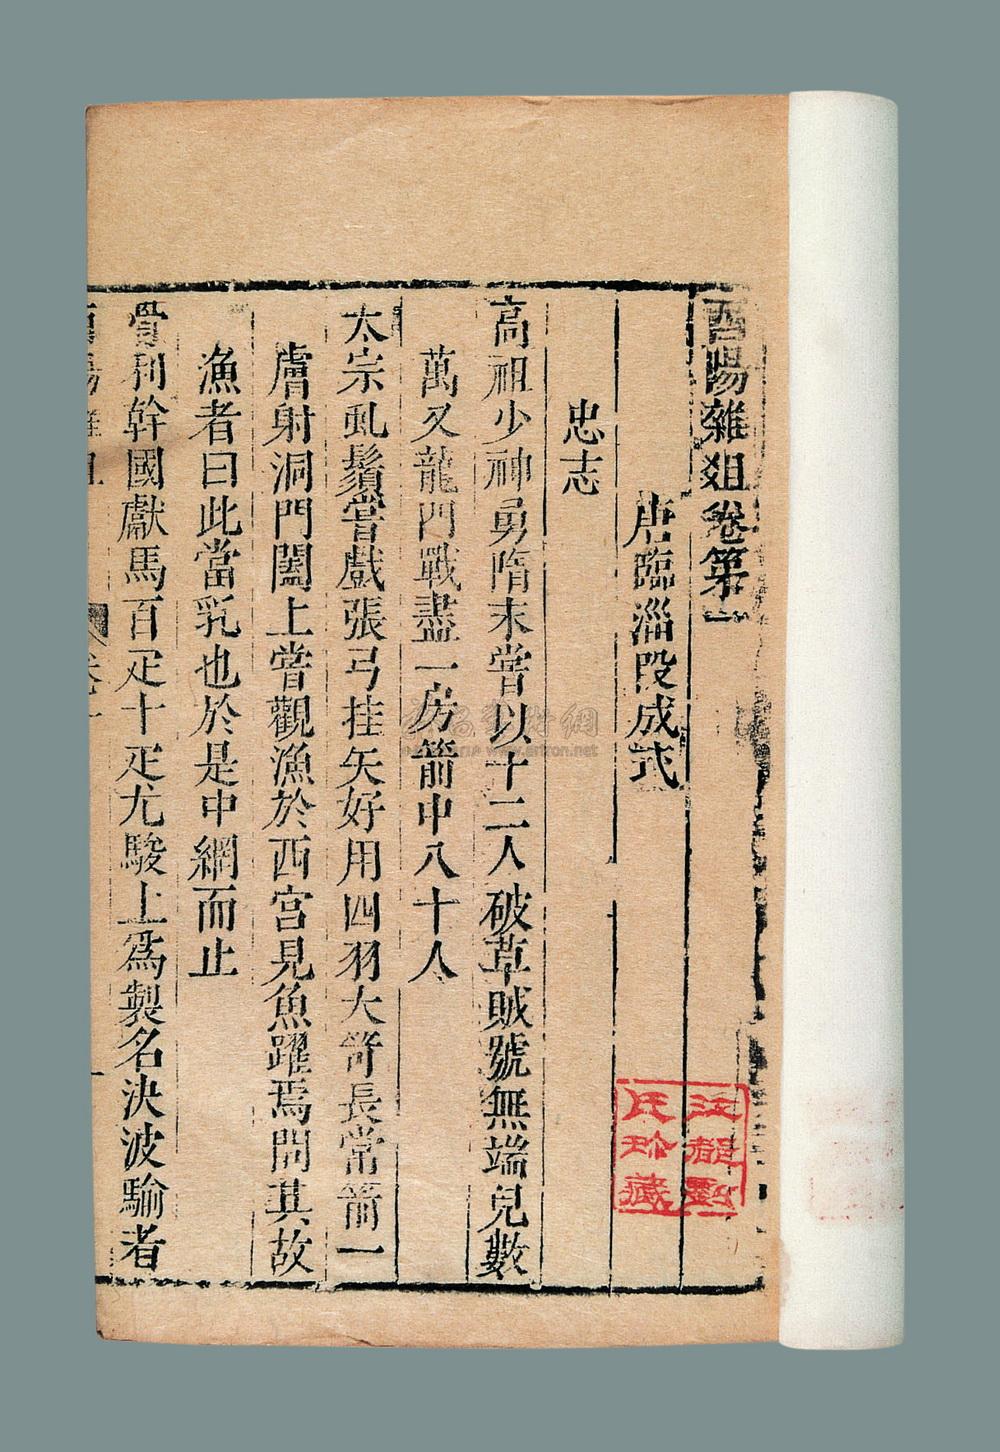 酉陽雜俎卷第一
唐臨淄段成式
忠志
高祖少神勇隋末嘗以十二人破草賊號無端兒數
萬又龍門戰盡一房箭中八十人
太宗虬鬚嘗戲張弓挂矢好用四羽大笴長常箭一
膚射洞門闔上嘗觀漁於西宮見魚躍焉問其故
漁者曰此當乳也於是中網而止
骨利幹國獻馬百疋十疋尤駿上爲製名決波騟者
酉陽雜俎
卷一
一
江都劉
氏珍藏
www.artron.net